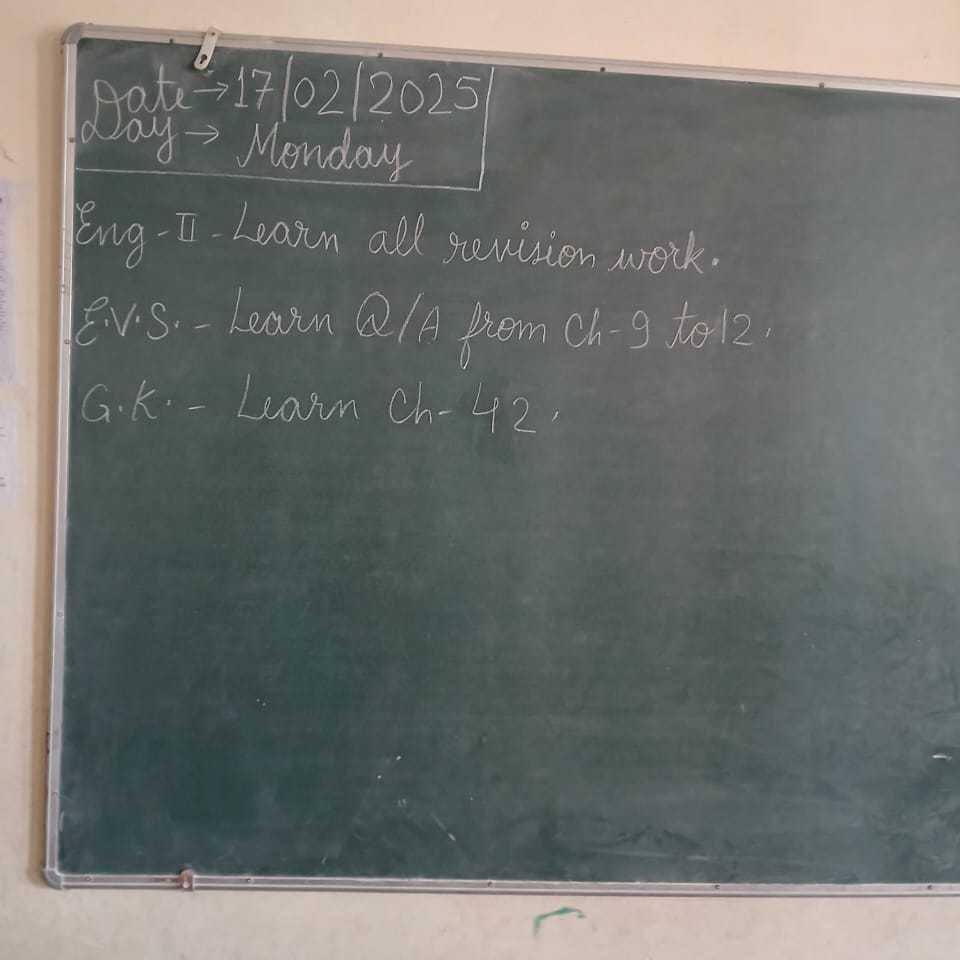 Date → 17/02/2025
Day → Monday
Eng - II - Learn all revision work.
E.V.S. - Learn Q/A from Ch-9 to 12.
G.K. - Learn Ch- 42.